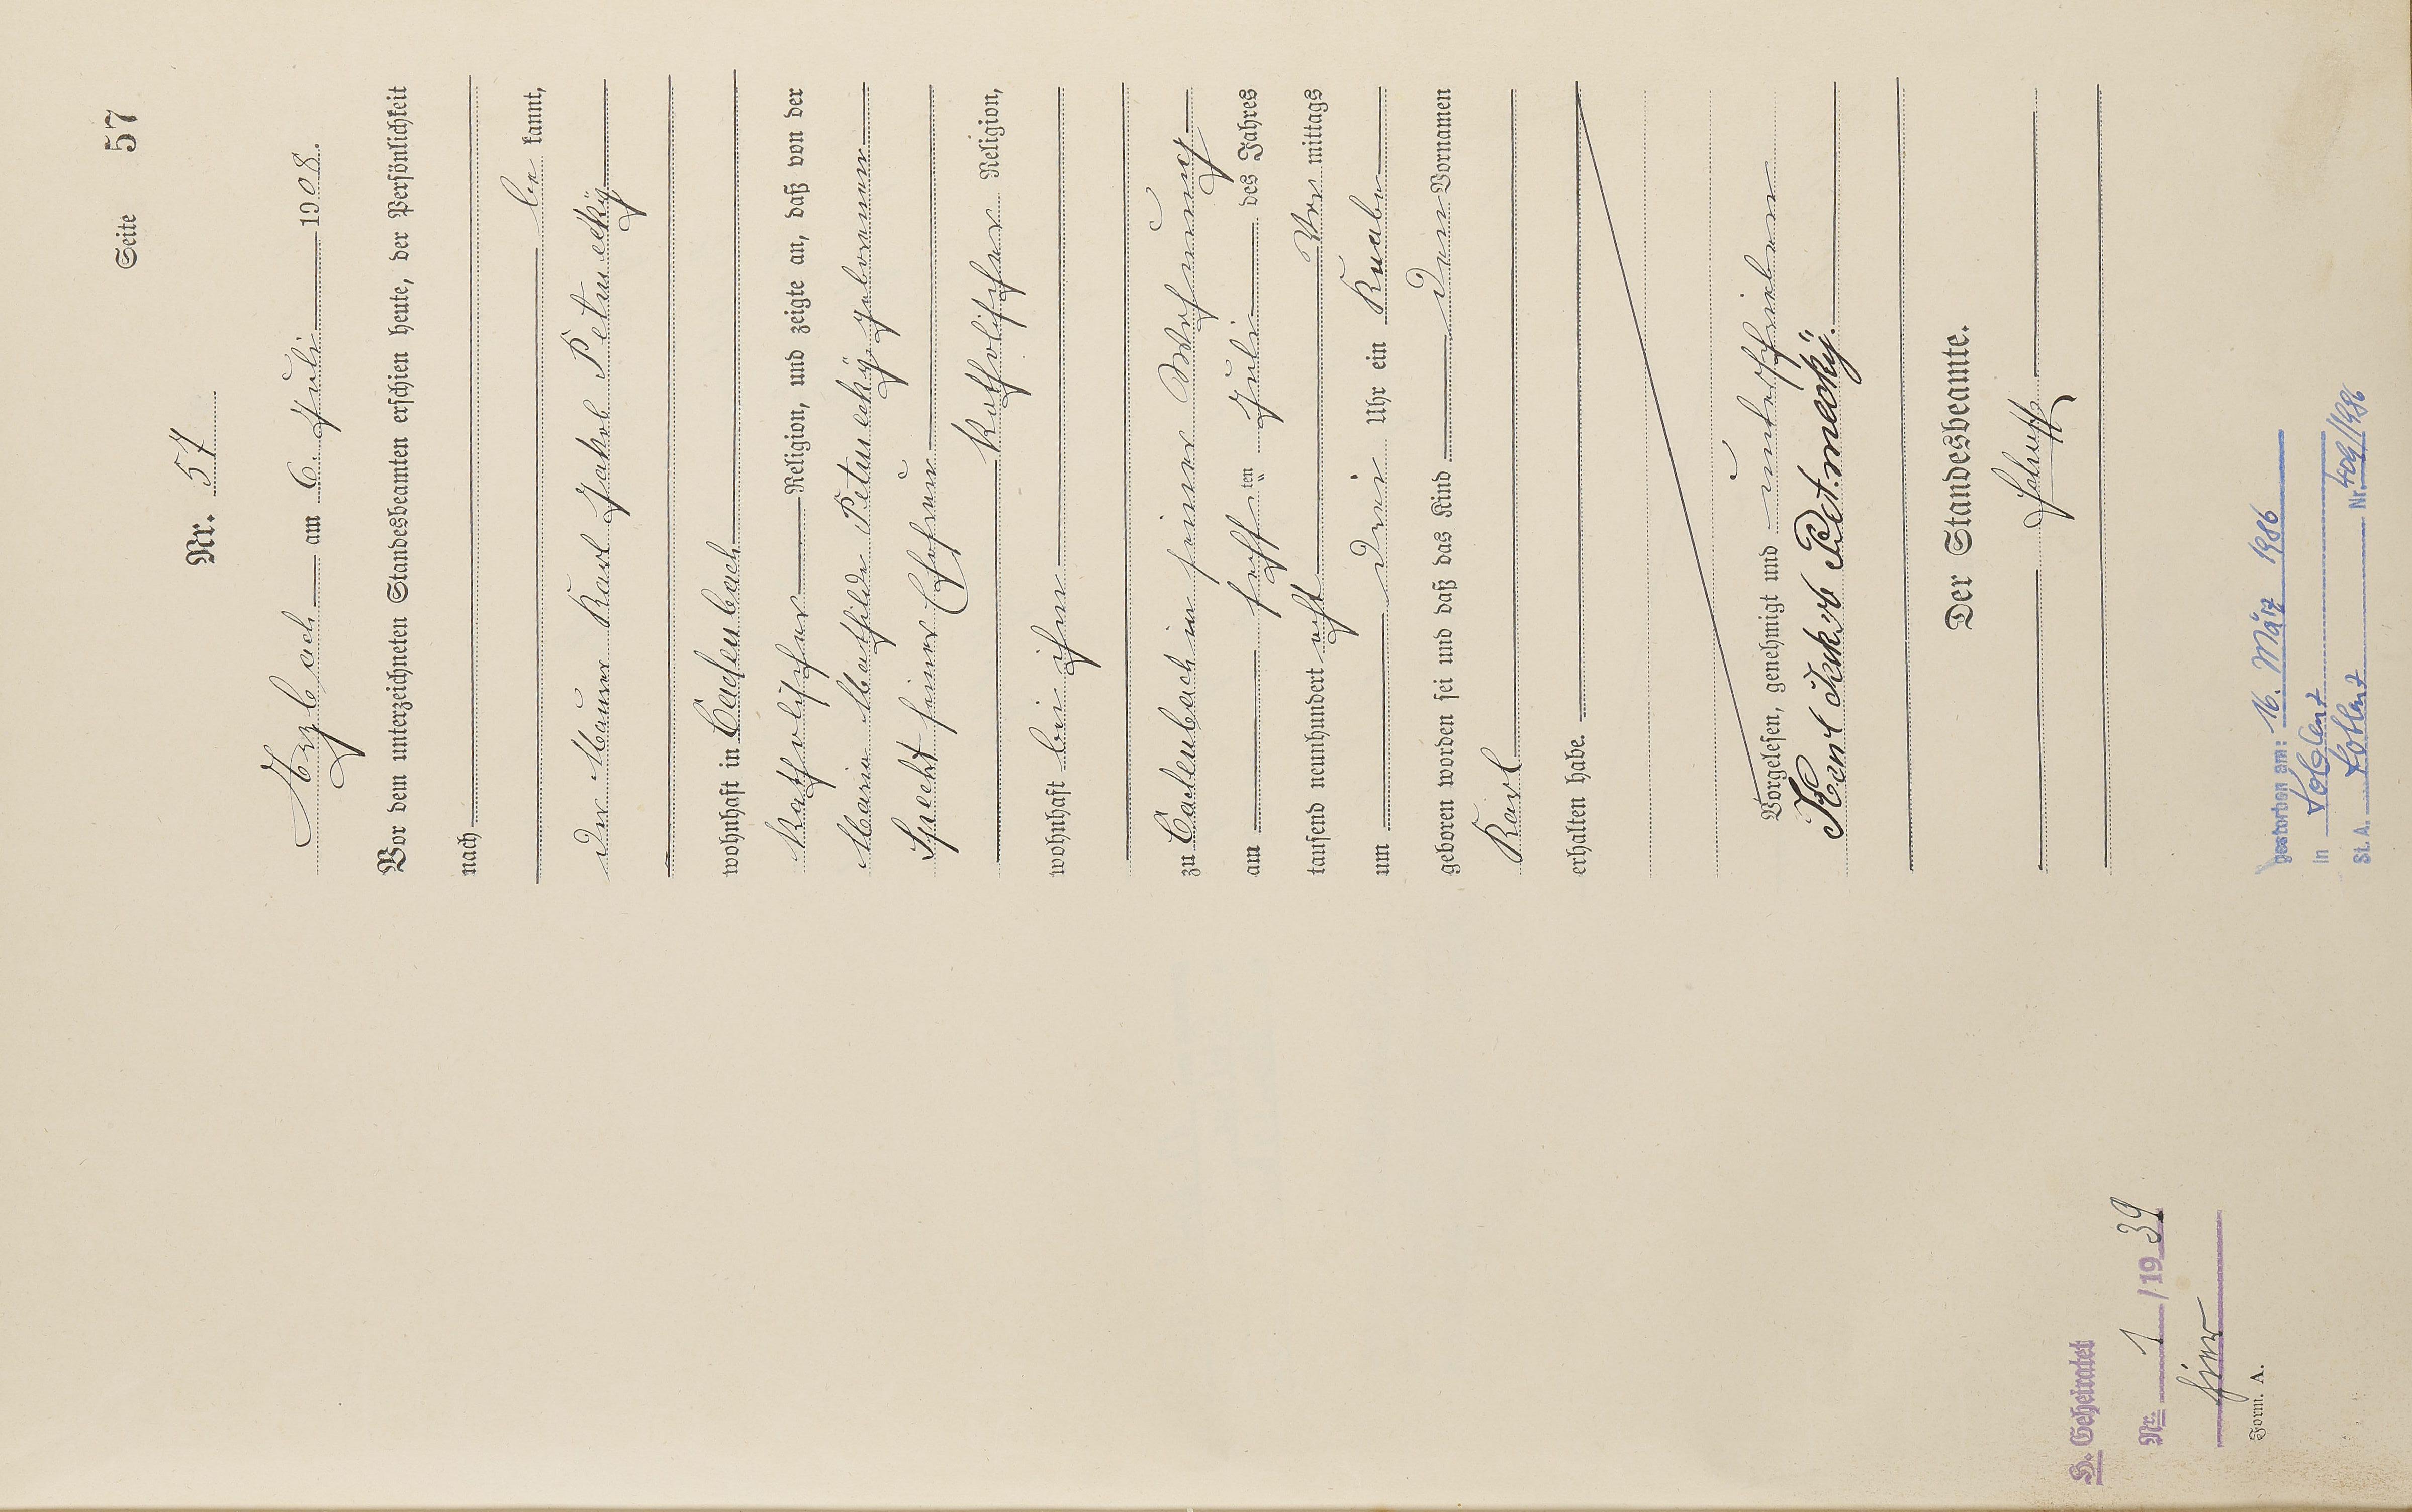 Seite 57
Nr. 57
Arzbach am 6. Juli 1908.
Vor dem unterzeichneten Standesbeamten erschien heute, der Persönlichkeit
nach
be kannt,
der Maurer Karl Jakob Petmecky
wohnhaft in Cadenbach
katholischer Religion, und zeigte an, daß von der
Maria Mathilde Petmecky geborenen
Specht seiner Ehefrau
katholischer Religion,
wohnhaft bei ihm
zu Cadenbach in seiner Wohnung
am sechsten Juli des Jahres
tausend neunhundert acht Vor mittags
um drei Uhr ein Knabe
geboren worden sei und daß das Kind den Vornamen
Karl
erhalten habe.
Vorgelesen, genehmigt und unterschrieben
Karl Jakob Petmecky.
Der Standesbeamte.
H. Geheiratet
Nr. 1 /19 39
hier
Form. A.
gestorben am: 16. März 1986
in Koblenz
St. A. Koblenz Nr. 409/1986